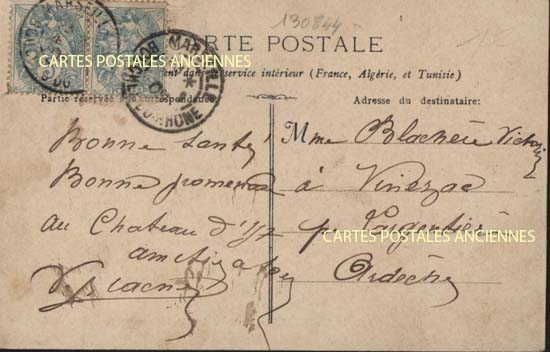 130844
CARTE POSTALE
CARTES POSTALES ANCIENNES
service intérieur (France, Algérie, et Tunisie)
Partie réservée à la correspondance
Adresse du destinataire:
MARSEILLE
BOUCHES DU RHONE
Bonne Santé
Bonne promenade
au Chateau d'If
Mme Blachère Victorin
à Vinezac
p Largentière
CARTES POSTALES ANCIENNES
Ardèche